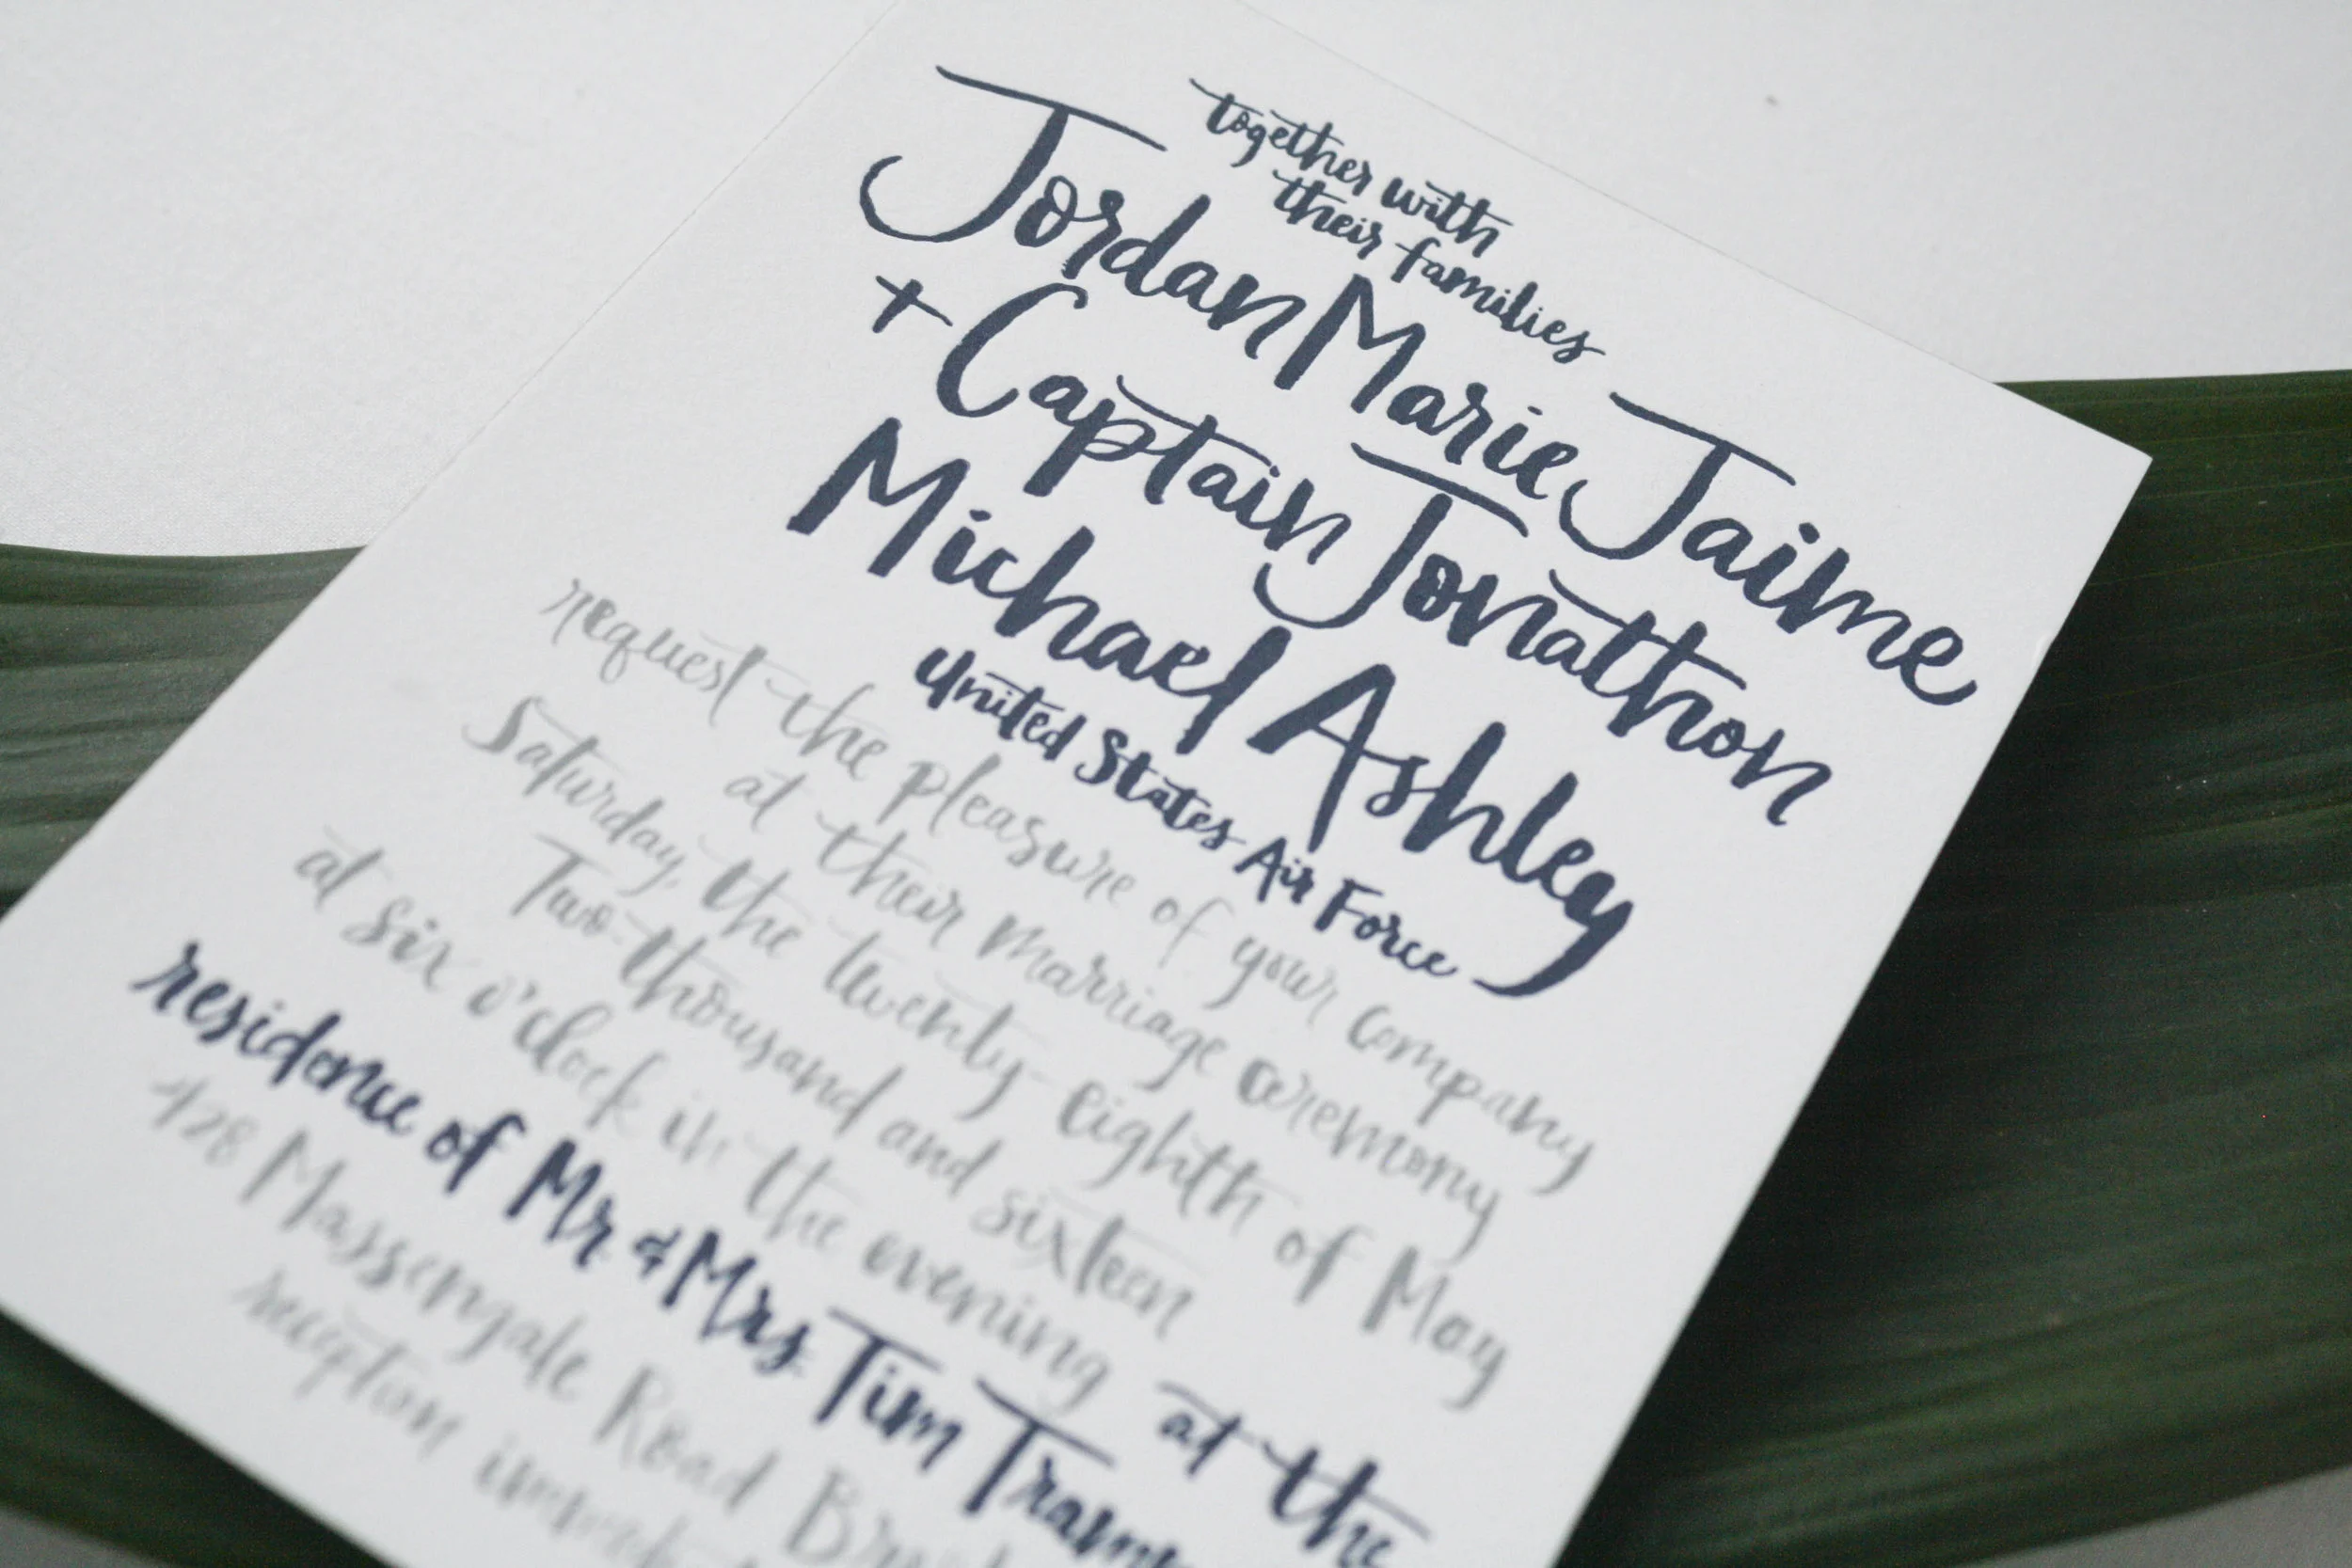 together with
their families
Jordan Marie Jaime
+ Captain Jonathon
Michael Ashley
United States Air Force
request the pleasure of your company
at their marriage ceremony
Saturday, the twenty-eighth of May
Two-thousand and sixteen
at six o'clock in the evening at the
residence of Mr & Mrs. Tim
428 Massengale Road
reception